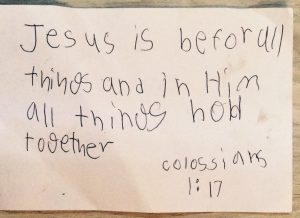 Jesus is befor all
things and in Him
all things hold
together
colossians
1:17